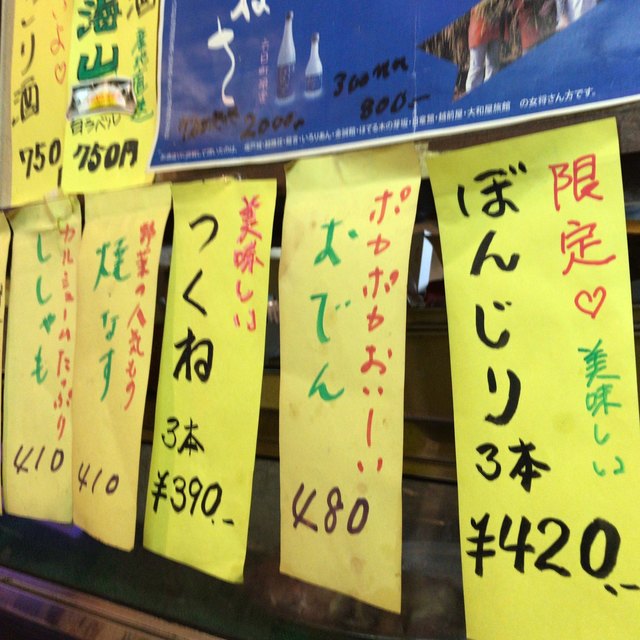 限定♡
美味しい
ぼんじり
3本
¥420.-
ポカポカおいしーい
おでん
480
美味しい
つくね
3本
¥390.-
野菜の人気もの
焼なす
410
カルシュームたっぷり
ししゃも
410
海山
白ラベル
750円
750
2000
300
800-
の女将さん方です。